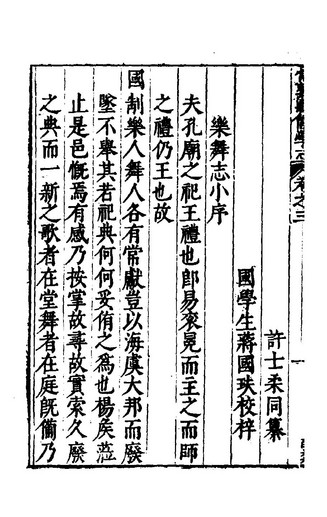 許士柔同纂
國學生蔣國玞校梓
樂舞志小序
夫孔廟之祀王禮也郎易衮冕而主之而師
之禮仍王也故
國制樂人舞人各有常獻豈以海虞大邦而廢
墜不舉其若祀典何何妥侑之為也楊矦蒞
止是邑慨焉有感乃按掌故尋故實索久廢
之典而一新之歌者在堂舞者在庭旣備乃